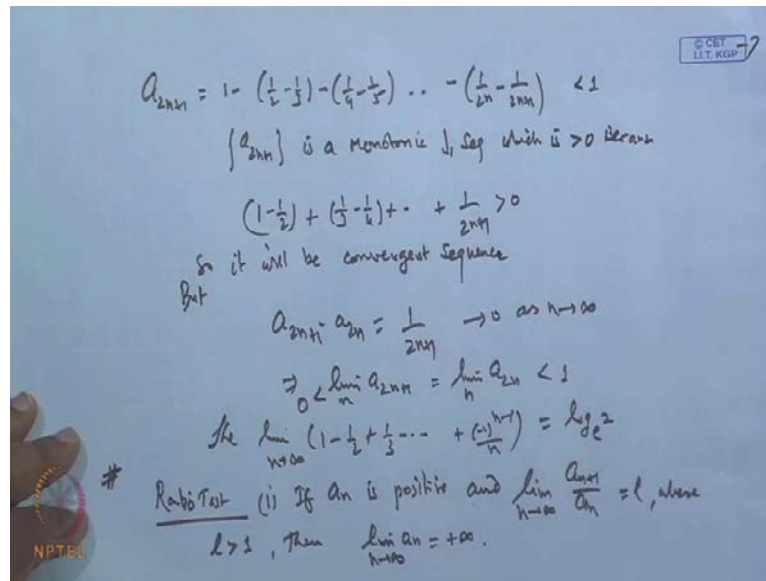 © CET
I.I.T. KGP
-7
a_{2n+1} = 1 - (1/2 - 1/3) - (1/4 - 1/5) .. - (1/2n - 1/2n+1) < 1
{a_{2n+1}} is a Monotonic ↓ Seq which is > 0 because
(1 - 1/2) + (1/3 - 1/4) + .. + 1/2n+1 > 0
So it will be convergent sequence
But
a_{2n+1} - a_{2n} = 1/2n+1 → 0 as n→∞
⇒ 0 < lim_n a_{2n+1} = lim_n a_{2n} < 1
The lim_{n→∞} (1 - 1/2 + 1/3 - ... + (-1)^{n-1}/n) = log_e 2
# Ratio Test (i) If an is positive and lim_{n→∞} a_{n+1}/a_n = l, where
l > 1, Then lim_{n→∞} an = +∞.
NPTEL